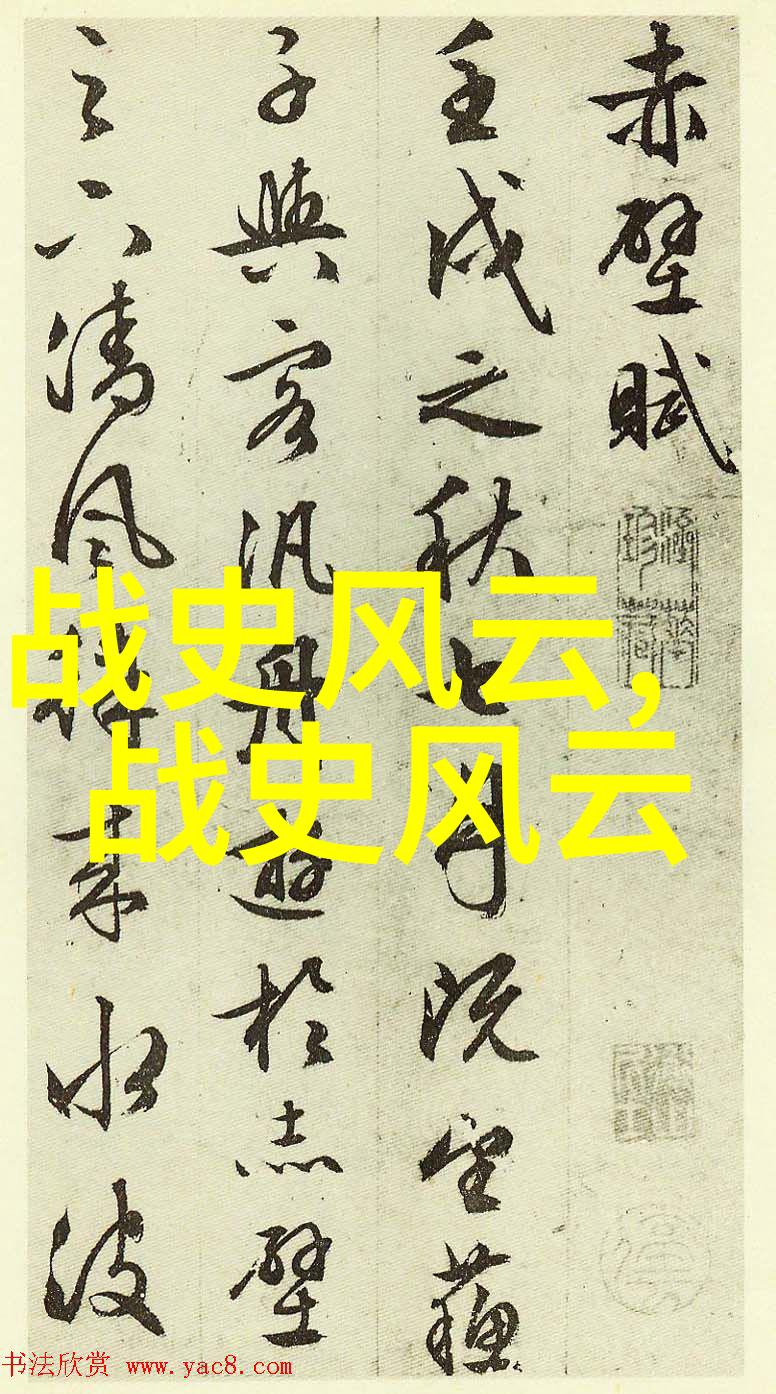 赤壁賦
壬戌之秋七月既望蘇
子與客汎舟遊於赤壁
之下清風徐来水波
战史风云,
战史风云
书法欣赏 www.yac8.com